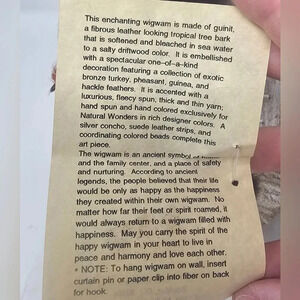 This enchanting wigwam is made of guinit,
a fibrous leather looking tropical tree bark
that is softened and bleached in sea water
to a salty driftwood color. It is embellished
with a spectacular one-of-a-kind
decoration featuring a collection of exotic
bronze turkey, pheasant, guinea, and
hackle feathers. It is accented with a
luxurious, fleecy spun, thick and thin yarn;
hand spun and hand colored exclusively for
Natural Wonders in rich designer colors. A
silver concho, suede leather strips, and
coordinating colored beads complete this
art piece.
The wigwam is an ancient symbol of
and the family center, and a place of safety
and nurturing. According to ancient
legends, the people believed that their life
would be only as happy as the happiness
they created within their own wigwam. No
matter how far their feet or spirit roamed, it
would always return to a wigwam filled with
happiness. May you carry the spirit of the
happy wigwam in your heart to live in
peace and harmony and love each other.
* NOTE: To hang wigwam on wall, insert
curtain pin or paper clip into fiber on back
for hook.